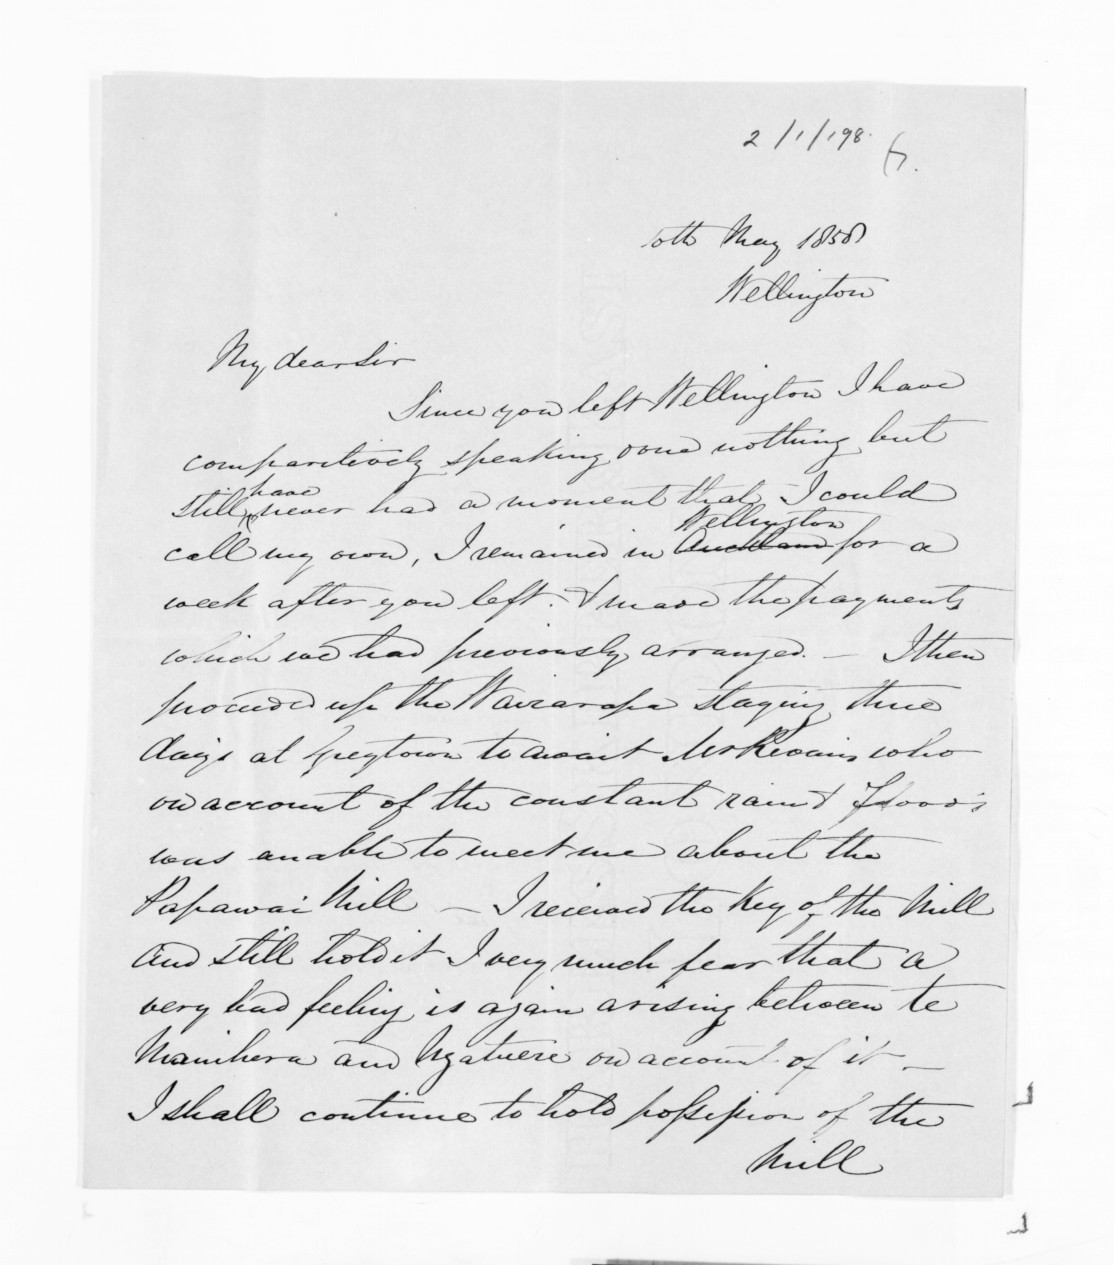 2/1/198.
10th May 1858
Wellington
My dear Sir
Since you left Wellington I have
comparitively speaking done nothing but
still have never had a moment that I could
call my own, I remained in Wellington Auckland for a
week after you left. & made the payments
which we had previously arranged. — I then
proceeded up the Wairarapa staying three
days at Greytown to await who
on account of the constant rain & Floods
was unable to meet me about the
Papawai Mill — I received the Key of the Mill
and still hold it I very much fear that a
very bad feeling is again arising between te
Manihera and Ngatuere on account of it —
I shall continue to hold possession of the
Mill